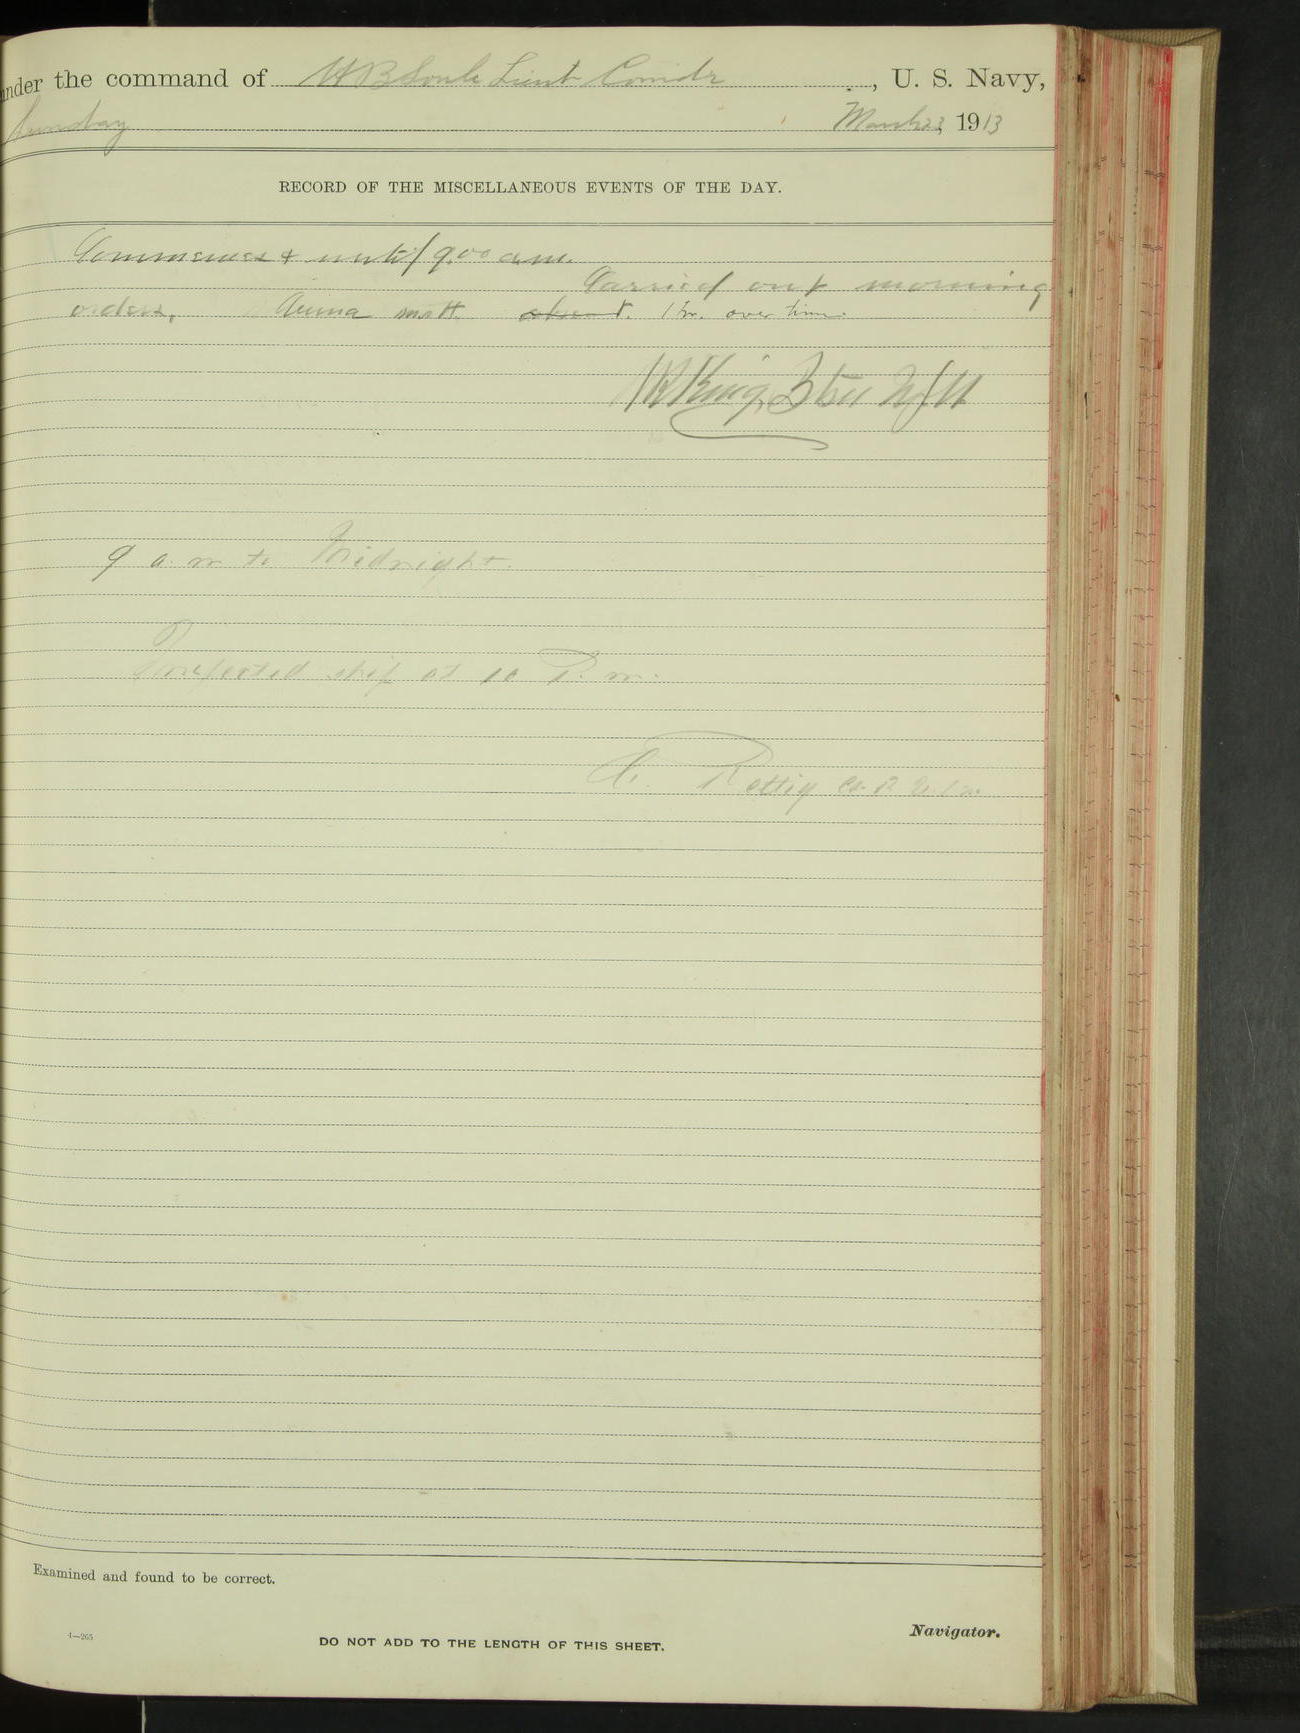 under the command of W B Soule Lieut Comdr , U. S. Navy,
Sunday March 23, 1913
RECORD OF THE MISCELLANEOUS EVENTS OF THE DAY.
Commences & until 9.00 a.m.
Carried out morning
orders. matt. absent. 1 hr. over time.
King,
9 a.m to Midnight.
Inspected ship at 10 P. m.
C. Rettig
Examined and found to be correct.
4—265
DO NOT ADD TO THE LENGTH OF THIS SHEET.
Navigator.